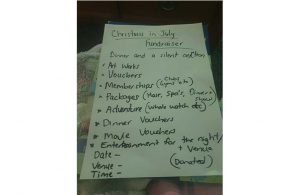 Christmas in July
fundraiser
Dinner and a silent auction
* Art Works
* Vouchers
* Memberships (Clubs, Gyms etc)
* Packages (Hair, Spa's, Dinner & Show)
* Adventure (whale watch etc)
* Dinner Vouchers
* Movie Vouchers
* Entertainment for the night/
+ Venue
Date - (Donated)
Venue -
Time -